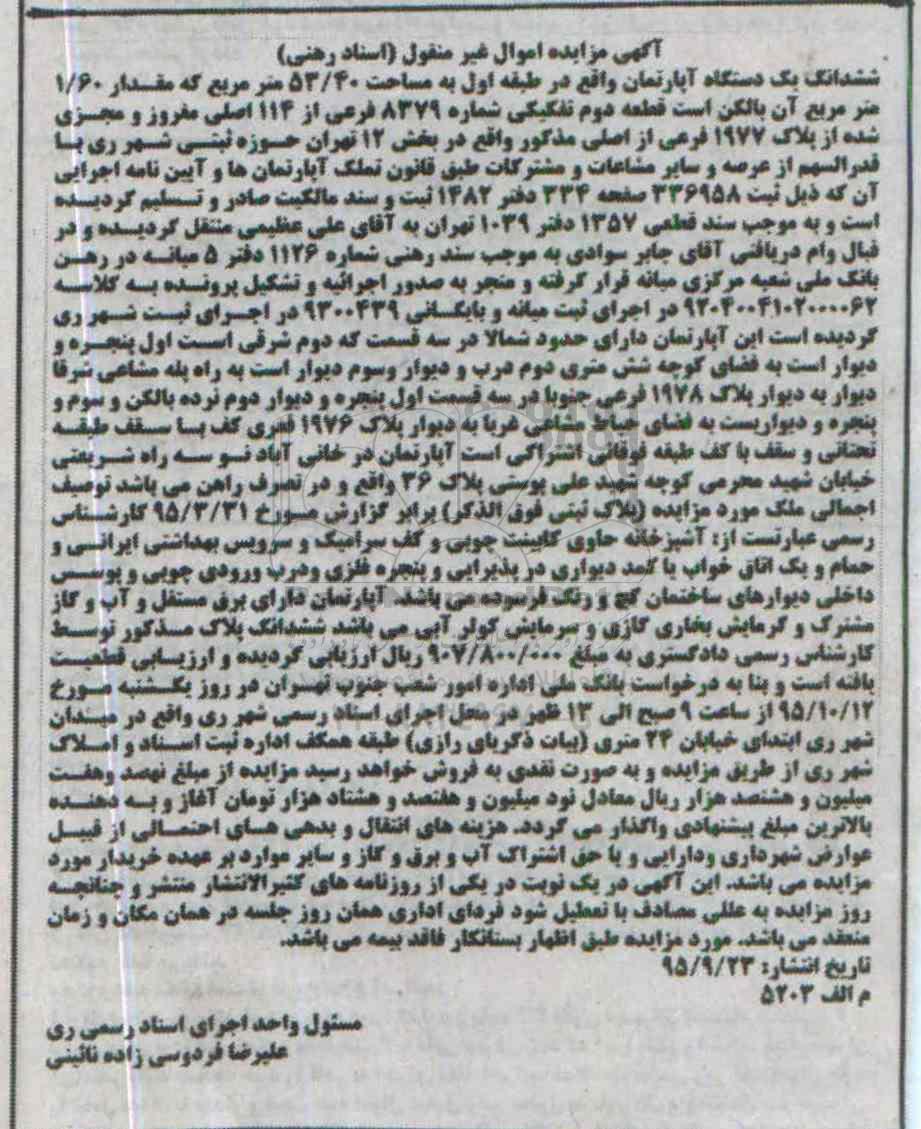 آگهی مزایده اموال غیر منقول (اسناد رهنی)
ششدانگ یک دستگاه آپارتمان واقع در طبقه اول به مساحت ۵۳/۴۰ متر مربع که مقدار ۱/۶۰
متر مربع آن بالکن است قطعه دوم تفکیکی شماره ۸۳۷۹ فرعی از ۱۱۴ اصلی مفروز و مجزی
شده از پلاک ۱۹۷۷ فرعی از اصلی مذکور واقع در بخش ۱۲ تهران حوزه ثبتی شهر ری با
قدرالسهم از عرصه و سایر مشاعات و مشترکات طبق قانون تملک آپارتمان ها و آیین نامه اجرایی
آن که ذیل ثبت ۳۳۶۹۵۸ صفحه ۳۳۴ دفتر ۱۴۸۲ ثبت و سند مالکیت صادر و تسلیم گردیده
است و به موجب سند قطعی ۱۳۵۷ دفتر ۱۰۳۹ تهران به آقای علی عظیمی منتقل گردیده و در
قبال وام دریافتی آقای جابر سوادی به موجب سند رهنی شماره ۱۱۲۶ دفتر ۵ میانه در رهن
بانک ملی شعبه مرکزی میانه قرار گرفته و منجر به صدور اجرائیه و تشکیل پرونده به کلاسه
۹۲۰۴۰۰۴۱۰۲۰۰۰۰۶۲ در اجرای ثبت میانه و بایگانی ۹۳۰۰۴۳۹ در اجرای ثبت شهر ری
گردیده است این آپارتمان دارای حدود شمالا در سه قسمت که دوم شرقی است اول پنجره و
دیوار است به فضای کوچه شش متری دوم درب و دیوار وسوم دیوار است به راه پله مشاعی شرقا
دیوار به دیوار پلاک ۱۹۷۸ فرعی جنوبا در سه قسمت اول پنجره و دیوار دوم نرده بالکن و سوم و
پنجره و دیواریست به فضای حیاط مشاعی غربا به دیوار پلاک ۱۹۷۶ فعری کف با سقف طبقه
تحتانی و سقف با کف طبقه فوقانی اشتراکی است آپارتمان در خانی آباد نو سه راه شریعتی
خیابان شهید محرمی کوچه شهید علی یوستی پلاک ۳۶ واقع و در تصرف راهن می باشد توصیف
اجمالی ملک مورد مزایده (پلاک ثبتی فوق الذکر) برابر گزارش مورخ ۹۵/۳/۳۱ کارشناس
رسمی عبارتست از: آشپزخانه حاوی کابینت چوبی و کف سرامیک و سرویس بهداشتی ایرانی و
حمام و یک اتاق خواب با کمد دیواری در پذیرایی و پنجره فلزی ودرب ورودی چوبی و پوسس
داخلی دیوارهای ساختمان گچ و رنگ فرسوده می باشد. آپارتمان دارای برق مستقل و آب و گاز
مشترک و گرمایش بخاری گازی و سرمایش کولر آبی می باشد ششدانگ پلاک مذکور توسط
کارشناس رسمی دادگستری به مبلغ ۹۰۷/۸۰۰/۰۰۰ ریال ارزیابی گردیده و ارزیابی قطعیت
یافته است و بنا به درخواست بانک ملی اداره امور شعب جنوب تهران در روز یکشنبه مورخ
۹۵/۱۰/۱۲ از ساعت ۹ صبح الی ۱۳ ظهر در محل اجرای اسناد رسمی شهر ری واقع در میدان
شهر ری ابتدای خیابان ۲۴ متری (بیات ذکریای رازی) طبقه همکف اداره ثبت اسناد و املاک
شهر ری از طریق مزایده و به صورت نقدی به فروش خواهد رسید مزایده از مبلغ نهصد وهفت
میلیون و هشتصد هزار ریال معادل نود میلیون و هفتصد و هشتاد هزار تومان آغاز و به دهنده
بالاترین مبلغ پیشنهادی واگذار می گردد. هزینه های انتقال و بدهی های احتمالی از قبیل
عوارض شهرداری ودارایی و یا حق اشتراک آب و برق و گاز و سایر موارد بر عهده خریدار مورد
مزایده می باشد. این آگهی در یک نوبت در یکی از روزنامه های کثیرالانتشار منتشر و چنانچه
روز مزایده به عللی مصادف با تعطیل شود فردای اداری همان روز جلسه در همان مکان و زمان
منعقد می باشد. مورد مزایده طبق اظهار بستانکار فاقد بیمه می باشد.
تاریخ انتشار: ۹۵/۹/۲۳
م الف ۵۲۰۳
مسئول واحد اجرای اسناد رسمی ری
علیرضا فردوسی زاده نائینی